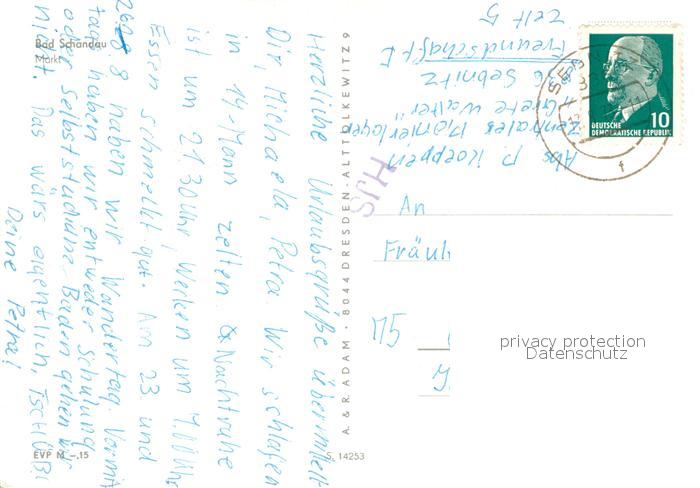 Bad Schandau
Markt
Herzliche Urlaubsgrüße übermittelt
Dir, Michaela, Petra. Wir schlafen
in 14-Mann Zelten. Nachtruhe
ist um 21.30 Uhr, Wecken um 7.00 Uhr
Essen schmeckt gut. Am 23 und
26. 8 haben wir Wandertag. Vormit
tag haben wir entweder Schulung
oder Baden gehen wir
nicht. Das wärs eigentlich, Tschüß!
Deine Petra!
Abs P. Koeppen
Zentrales Pionierlager
"Grete Walter"
36 Sebnitz
Freundschaft I
Zelt 5
10
DEUTSCHE
DEMOKRATISCHE REPUBLIK
An
Fräul
M5
privacy protection
Datenschutz
A. & R. ADAM · 8044 DRESDEN - ALTTOLKEWITZ 9
EVP M –.15
S. 14253